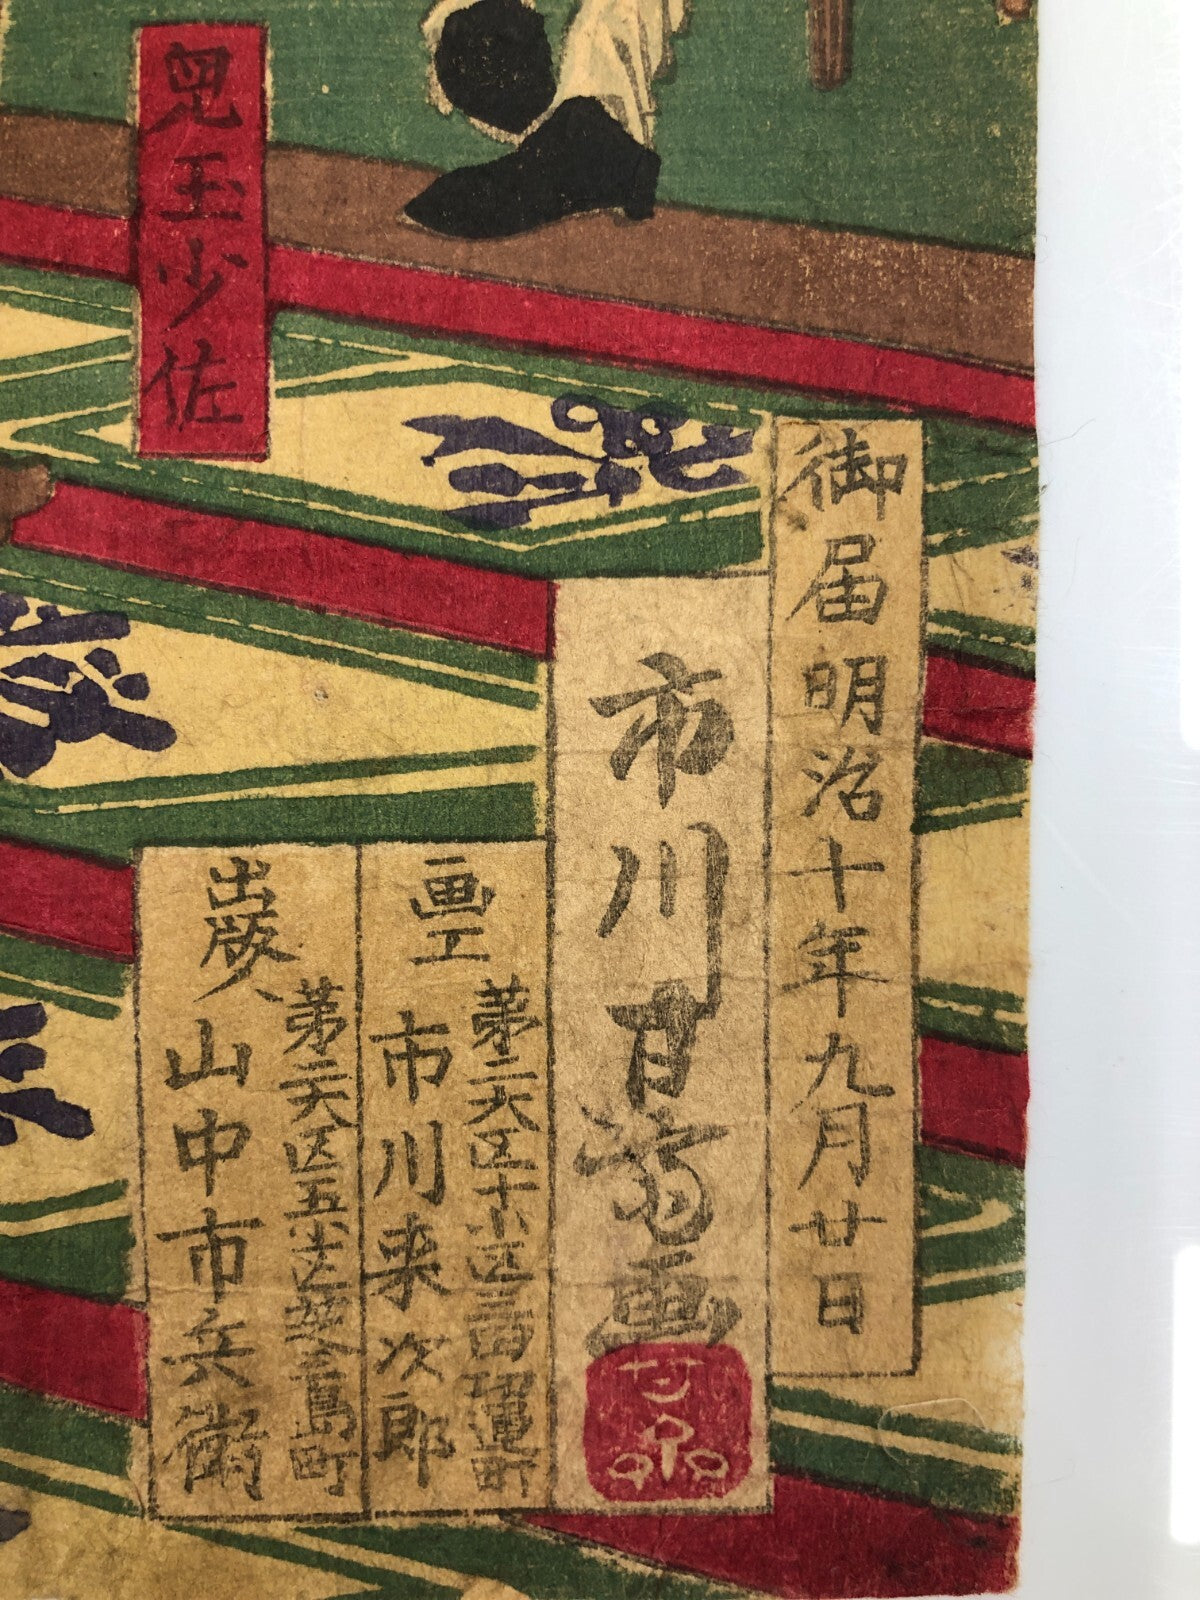 兒玉少佐
御届明治十年九月廿日
市川甘斎画
第二大区十小区三田功運町
画工 市川来次郎
第二大区五小区芝三島町
出版人 山中市兵衛